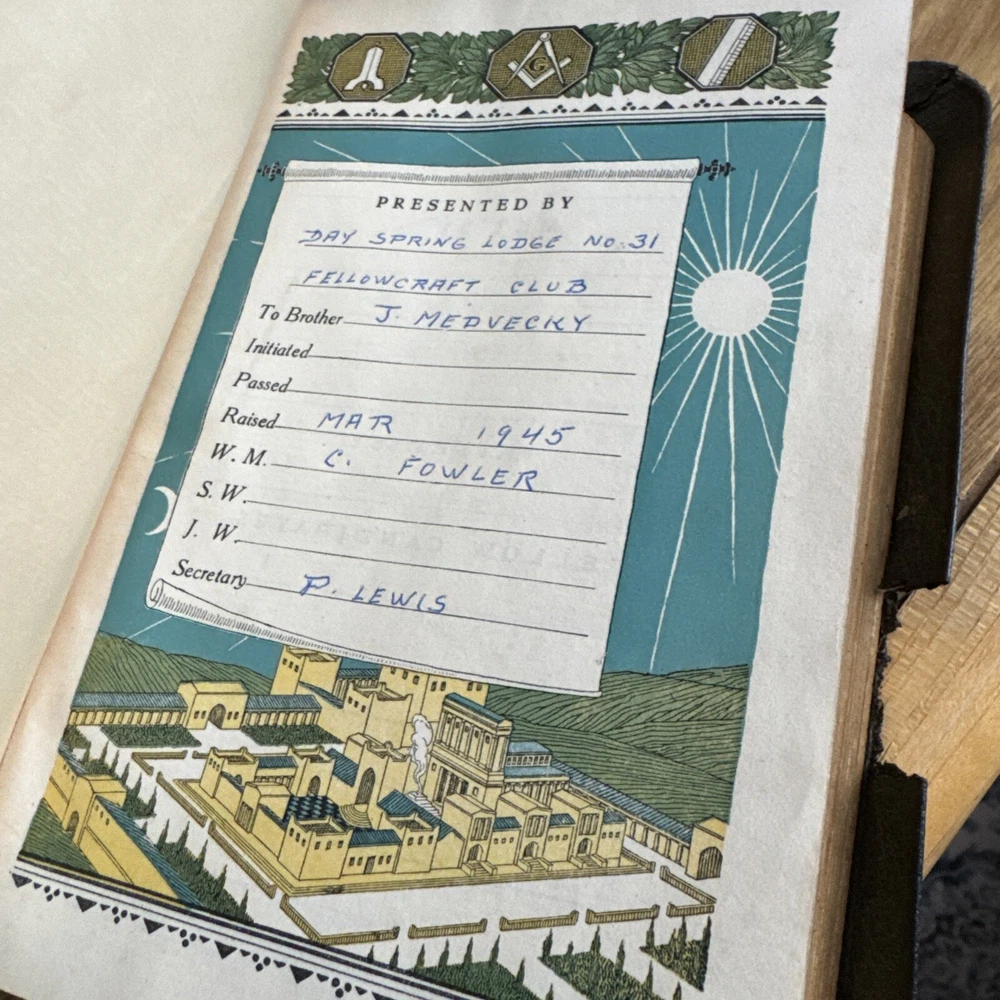 G
PRESENTED BY
DAY SPRING LODGE NO. 31
FELLOWCRAFT CLUB
To Brother J. MEDVECKY
Initiated
Passed
Raised MAR 1945
W. M. C. FOWLER
S. W.
J. W.
Secretary P. LEWIS